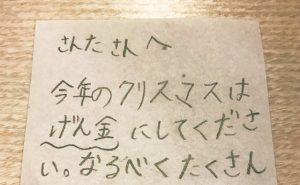 さんたさんへ
今年のクリスマスは
げん金にしてくださ
い。なるべくたくさん